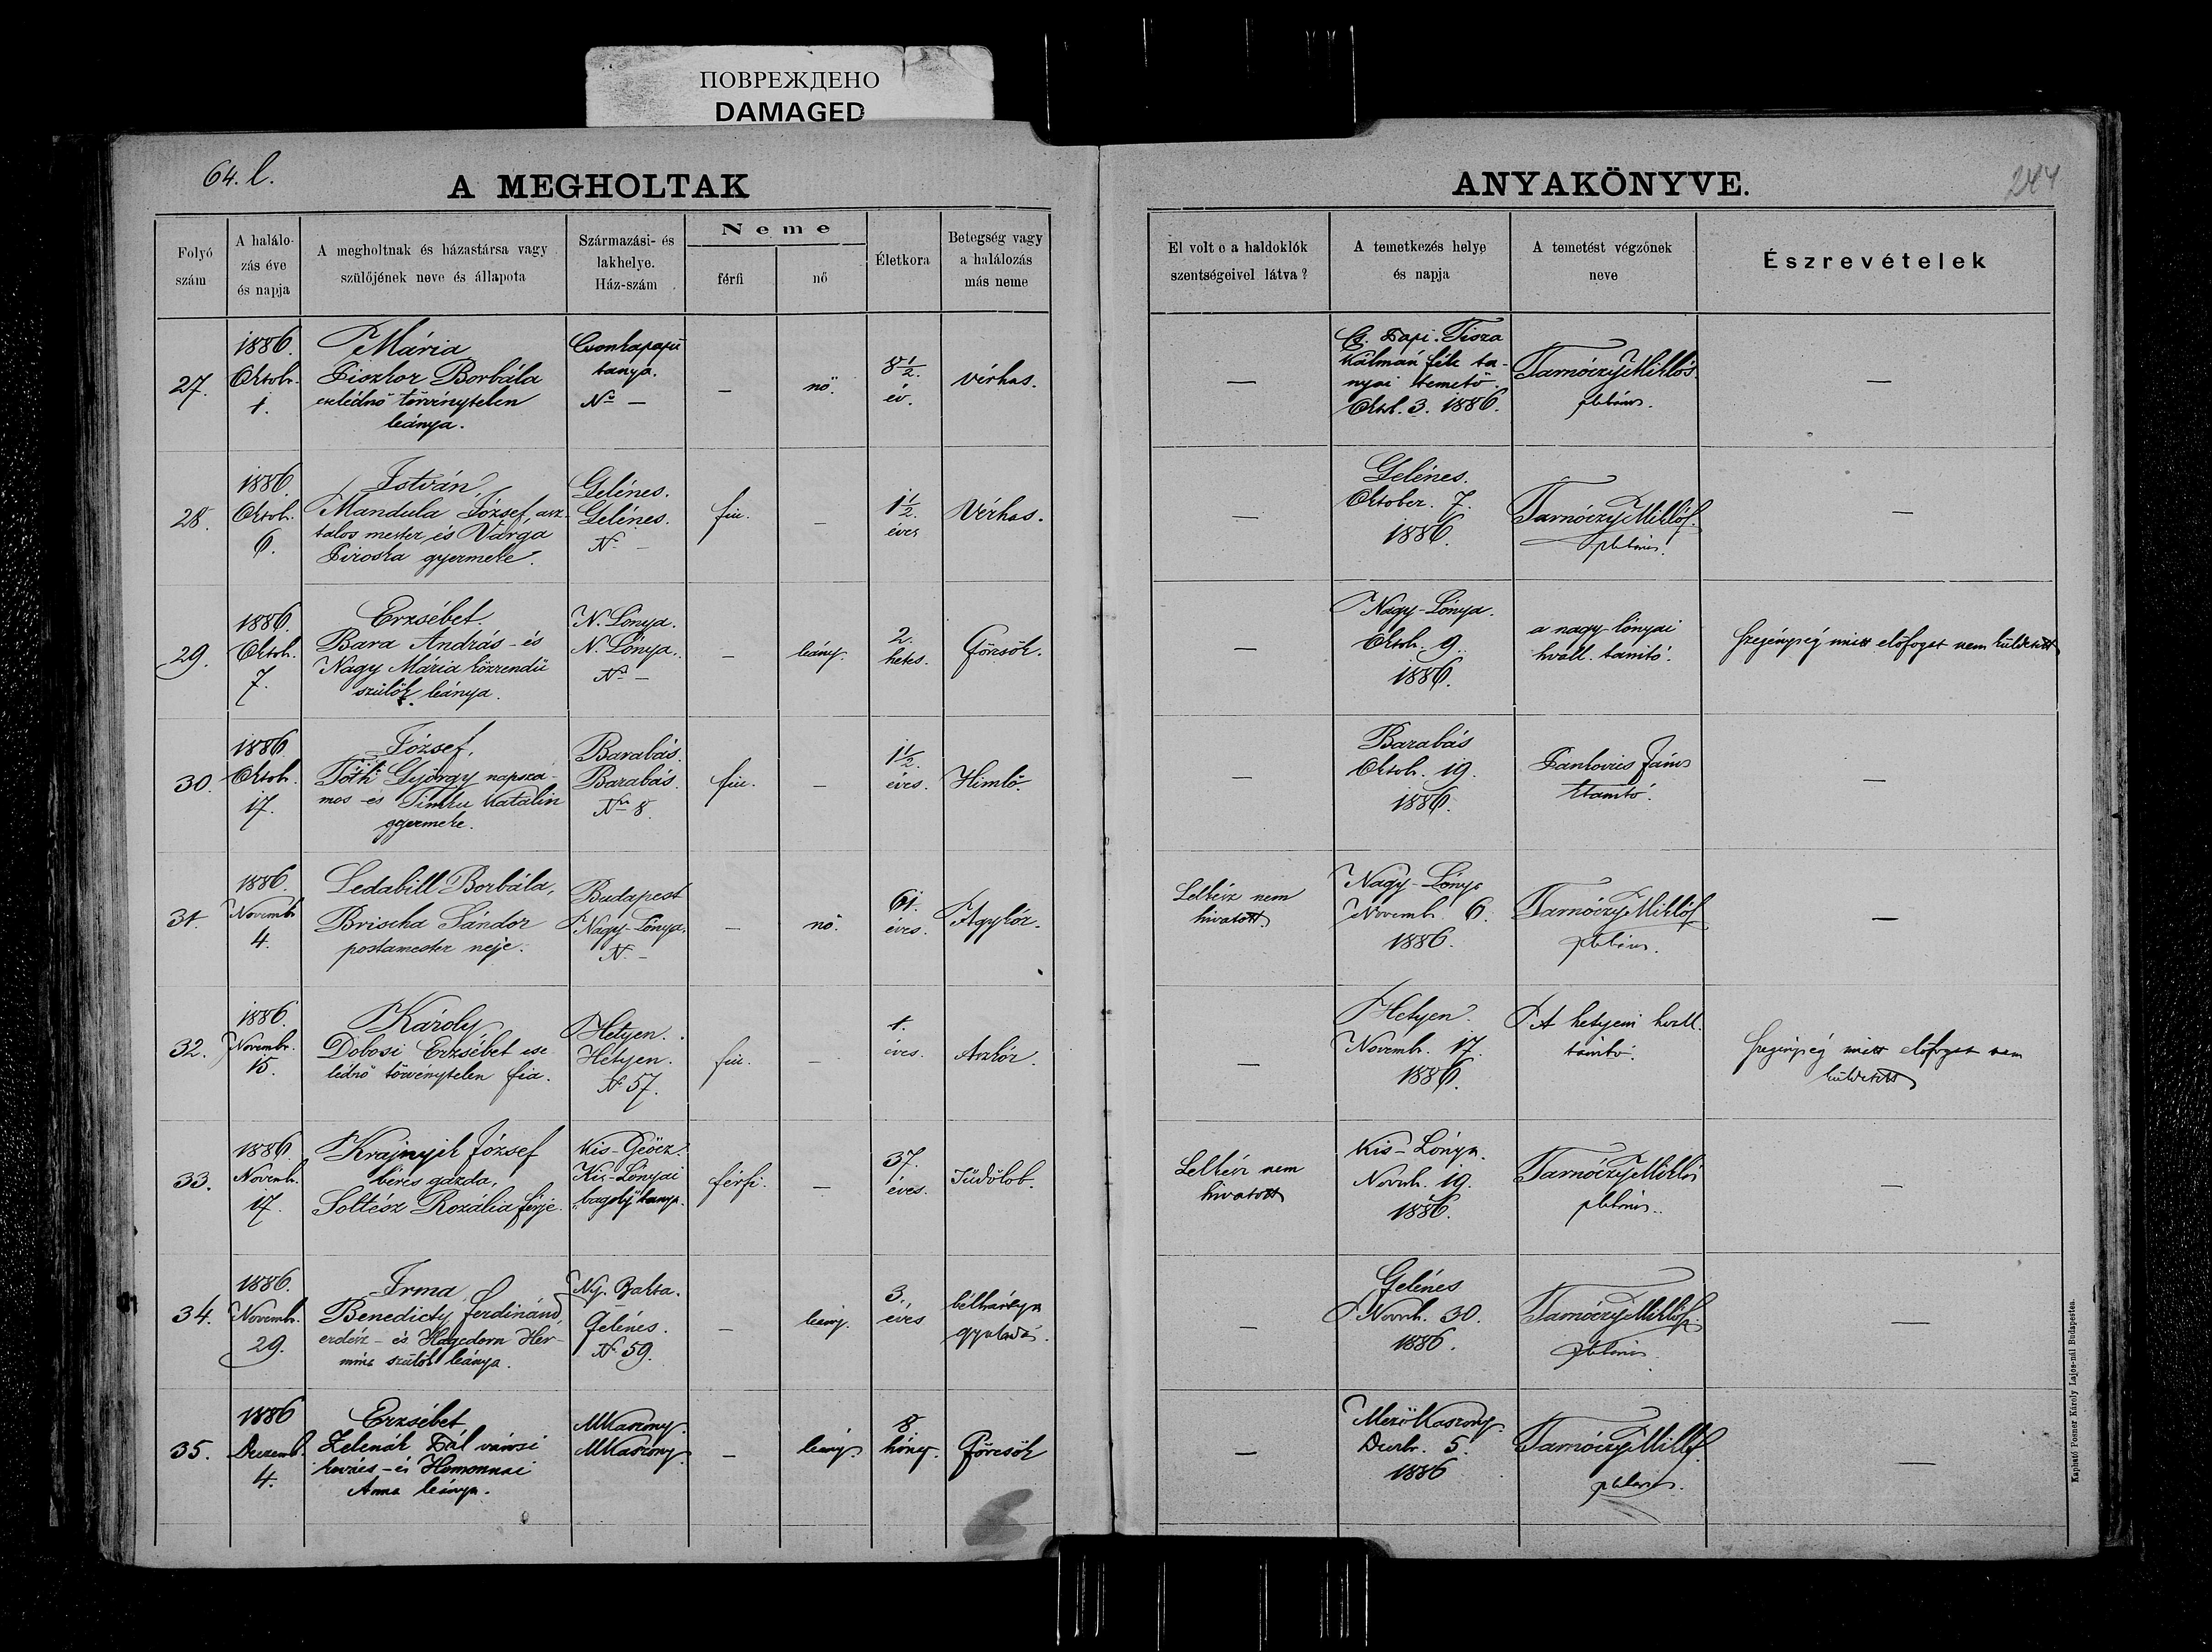 ПОВРЕЖДЕНО
DAMAGED
64. l.
A MEGHOLTAK
ANYAKÖNYVE.
244
Folyó
szám
A halálo-
zás éve
és napja
A megholtnak és házastársa vagy
szülőjének neve és állapota
Származási- és
lakhelye.
Ház-szám
Neme
férfi
nő
Életkora
Betegség vagy
a halálozás
más neme
El volt e a haldoklók
szentségeivel látva?
A temetkezés helye
és napja
A temetést végzőnek
neve
Észrevételek
27.
1886.
Oktob.
1.
Mária
Piszkor Borbála
cselédnő törvénytelen
leánya.
Csonkapapi
tanya.
No —
—
nő.
8 1/2.
év.
vérhas.
—
Cs. Papi. Tisza
Kálmán féle ta-
nyai temető.
Okt. 3. 1886.
Tarnóczy Miklós
plébános.
—
28.
1886.
Oktob.
6.
István,
Mandula József, asz-
talos mester és Varga
Piroska gyermeke.
Gelénes.
Gelénes.
N. —
fiu.
—
1 1/2.
éves
Vérhas.
—
Gelénes.
Oktober. 7.
1886.
Tarnóczy Miklós.
plébános.
—
29.
1886.
Oktob.
7.
Erzsébet.
Bara András - és
Nagy Mária közrendű
szülők leánya.
N. Lónya.
N. Lónya.
No —
—
leány.
2.
hetes.
Görcsök.
—
Nagy-Lónya.
Oktob. 9.
1886.
a nagy lónyai
hvall. tanitó.
Szegénység miatt előfogat nem küldetett
30.
1886
Oktob.
17.
József,
Tóth György napszá-
mos - és Timku Katalin
gyermeke.
Barabás.
Barabás.
No 8.
fiu.
—
1 1/2.
éves.
Himlő.
—
Barabás
Oktob. 19.
1886.
Pankovics János
ktanitó.
—
31.
1886.
Novemb.
4.
Ledabill Borbála,
Brischa Sándor
postamester neje.
Budapest
Nagy-Lónya.
N. —
—
nő.
61.
éves.
Agykór.
Lelkész nem
hivatott
Nagy-Lónya
Novemb. 6.
1886.
Tarnóczy Miklós
plébános.
—
32.
1886.
Novembr.
15.
Károly
Dobosi Erzsébet cse
lédnő törvénytelen fia.
Hetyen.
Hetyen.
No 57.
fiu.
—
1.
éves.
Aszkór.
—
Hetyen.
Novemb. 17.
1886.
A hetyeni hvall.
tanitó.
Szegénység miatt előfogat nem
küldetett
33.
1886.
Novemb.
17.
Krajnyik József
béres gazda,
Soltész Rozália férje.
Kis-Geöcz.
Kis-Lónyai
bagoly tanya.
férfi.
—
37.
éves.
Tüdőlob.
Lelkész nem
hivatott
Kis-Lónya.
Novb. 19.
1886.
Tarnóczy Miklós
plébános.
—
34.
1886.
Novemb.
29.
Irma
Benedicty Ferdinánd,
erdész - és Hagedorn Her-
mina szülők leánya.
Ny. Bakta.
Gelénes.
N. 59.
—
leány.
3.
éves
bélhártya
gyuladás.
—
Gelénes
Novb. 30.
1886.
Tarnóczy Miklós.
plébános
—
35.
1886
Deczemb.
4.
Erzsébet
Zelenák Pál városi
kovács - és Homonnai
Anna leánya.
MKaszony.
MKaszony.
—
leány.
8
hóna.
Görcsök
—
MezőKaszony.
Decbr. 5.
1886
Tarnóczy Miklós.
plébános.
—
Kapható Posner Károly Lajos-nál Budapesten.